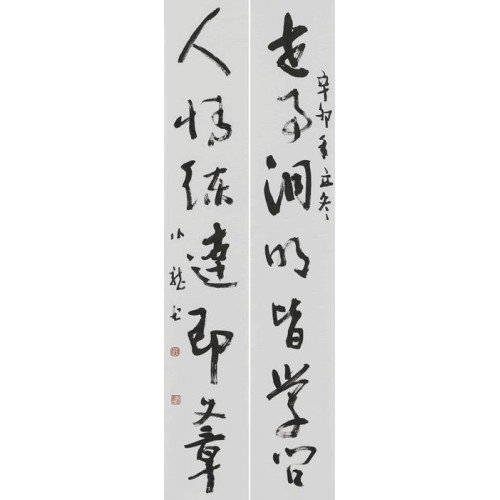 世事洞明皆学问
辛卯年立冬
人情练达即文章
小龙书